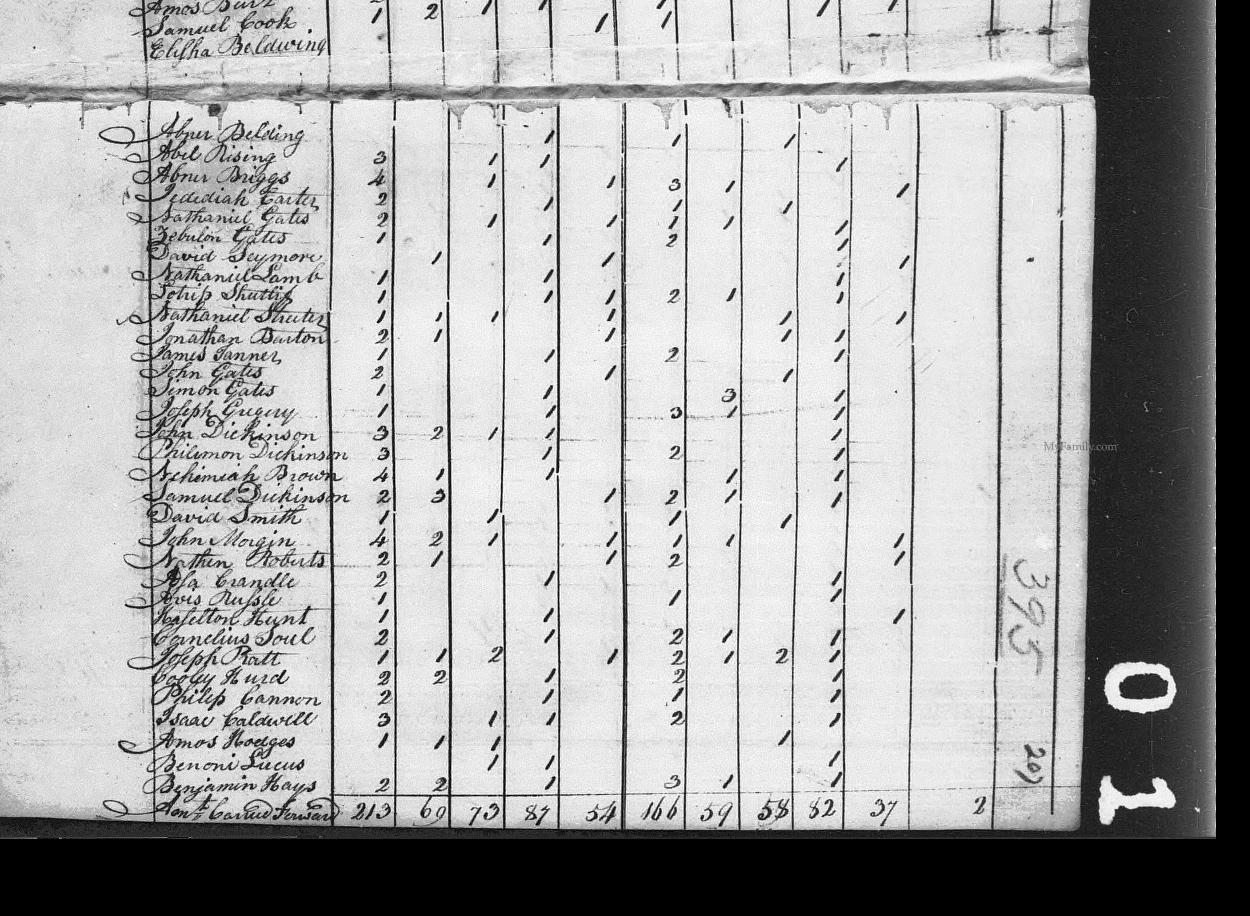 Amos Burt 1 1 1 1
Samuel Cook 1 2 1 1
Elisha Beldwing
Abner Belding 1 1 1
Abel Rising 3 1 1 1
Abner Briggs 4 1 1 3 1 1
Jedediah Carter 2 1 1 1
Nathaniel Gates 2 1 1 1 1 1
Zebulon Gates 1 1 2 1
David Seymore 1 1 1
Nathaniel Lamb 1 1 1
Shuttif 1 1 1 2 1 1
Nathaniel Streeter 1 1 1 1 1 1
Jonathan Barton 2 1 1 1 1
James Tanner 1 1 2 1
John Gates 2 1 1
Simon Gates 1 1 3 1
Joseph Gregery 1 1 3 1 1
John Dickinson 3 2 1 1 1
Philimon Dickinson 3 1 2 1
Nehimiah Brown 4 1 1 1 1
Samuel Dickinson 2 3 1 2 1 1
David Smith 1 1 1 1
John Morgin 4 2 1 1 1 1 1
Nathen Roberts 2 1 1 2 1
Asa Crandle 2 1 1
Avis Russle 1 1 1
Haselton Hunt 1 1 1
Cornelius Soul 2 1 2 1 1
Joseph Pratt 1 1 2 1 2 1 2 1
Cooley Hurd 2 2 1 2 1
Philip Cannon 2 1 1 1
Isaac Caldwell 3 1 1 2 1
Amos Hodges 1 1 1 1
Benoni Lucus 1 1 1
Benjamin Hays 2 2 1 3 1 1
Amt. Carried Forward 213 69 73 87 54 166 59 58 82 37 2
395
207
MyFamily.com
01